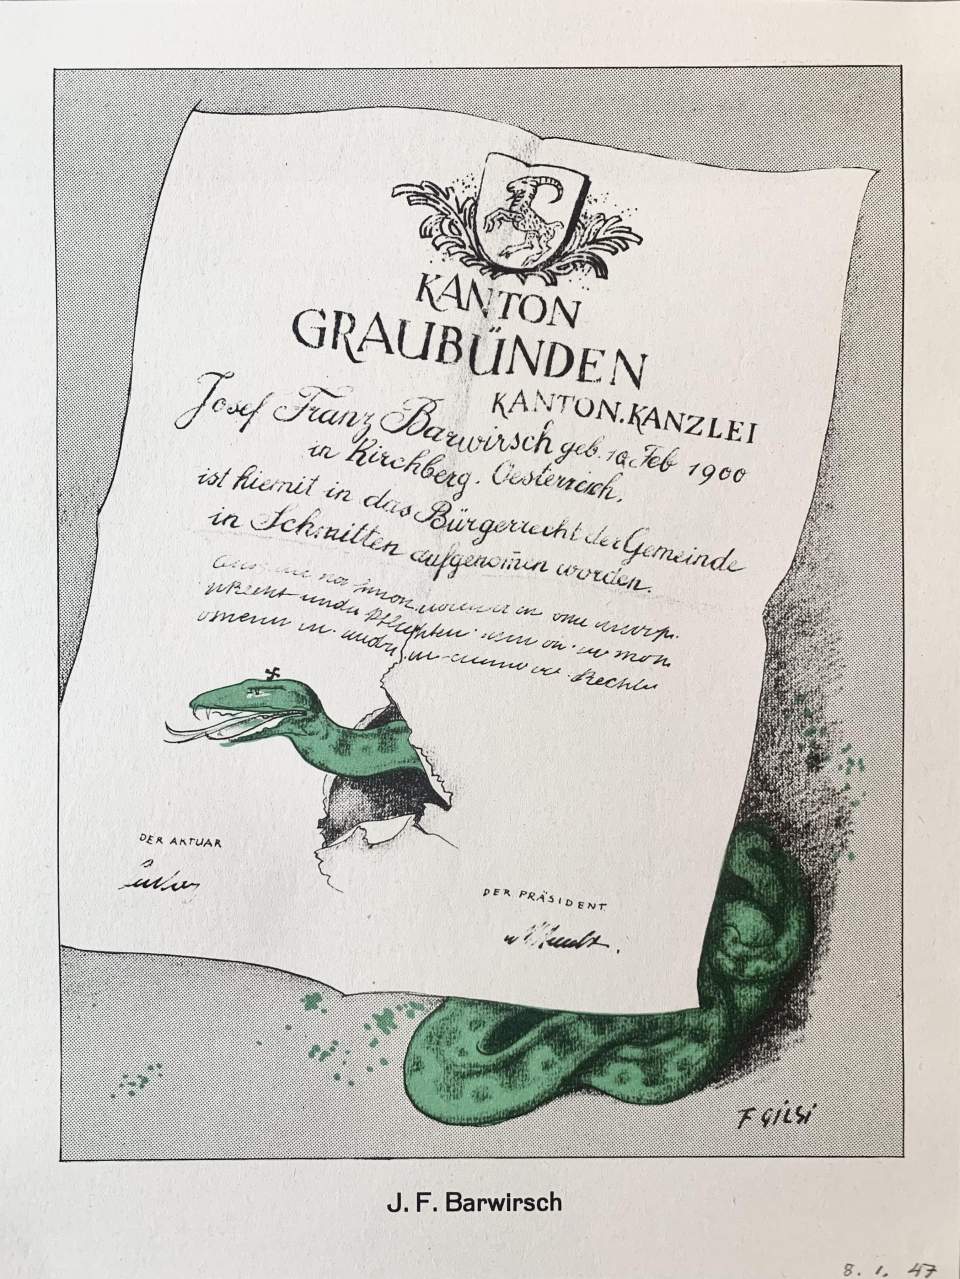 KANTON
GRAUBÜNDEN
KANTON.KANZLEI
Josef Franz Barwirsch geb. 10 Feb 1900
in Kirchberg. Oesterreich.
ist hiemit in das Bürgerrecht der Gemeinde
in Schmitten aufgenom̄en worden.
DER AKTUAR
DER PRÄSIDENT
F GILSI
J. F. Barwirsch
8. 1. 47